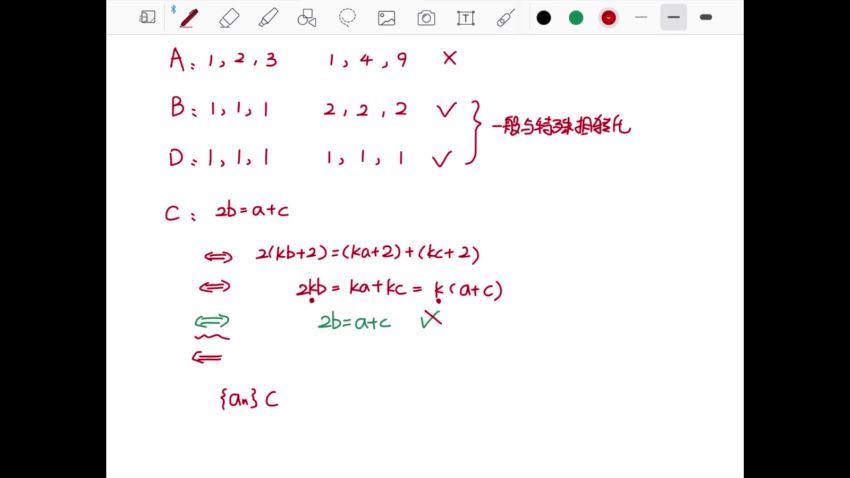 A: 1, 2, 3 1, 4, 9 ×
B: 1, 1, 1 2, 2, 2 ✓
一般与特殊相转化
D: 1, 1, 1 1, 1, 1 ✓
C: 2b=a+c
⇔ 2(kb+2)=(ka+2)+(kc+2)
⇔ 2kb=ka+kc=k(a+c)
⇔ 2b=a+c
⇐
{an} C